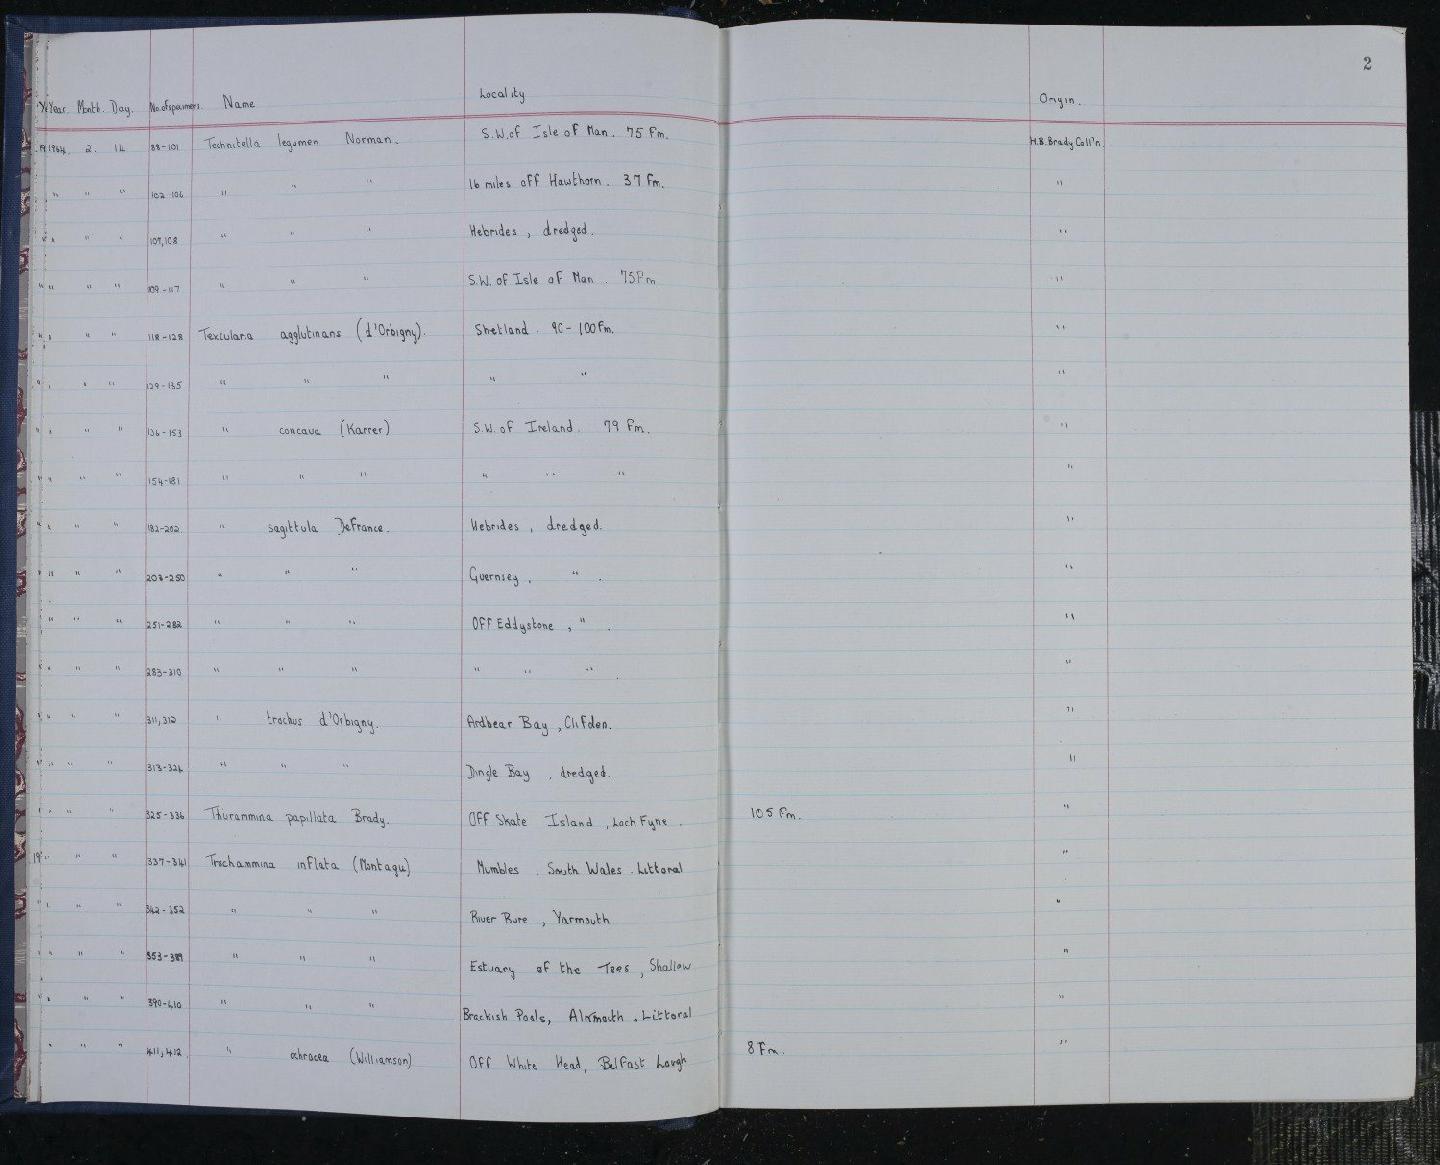 2
Year. Month. Day. No. of specimens. Name Locality Origin.
1964. 2. 14 88-101 Technitella legumen Norman. S.W. of Isle of Man. 75 Fm. H.B. Brady Coll'n.
" " " 102-106 " " " 16 miles off Hawthorn. 37 Fm. "
" " " 107,108 " " " Hebrides, dredged. "
" " " 109-117 " " " S.W. of Isle of Man. 75 Fm "
" " " 118-128 Textularia agglutinans (d'Orbigny). Shetland. 90-100 Fm. "
" " " 129-135 " " " " " "
" " " 136-153 " concava (Karrer) S.W. of Ireland. 79 Fm. "
" " " 154-181 " " " " " " "
" " " 182-202 " sagittula Defrance. Hebrides, dredged. "
" " " 203-250 " " " Guernsey, " . "
" " " 251-282 " " " Off Eddystone, " . "
" " " 283-310 " " " " " " "
" " " 311,312 " trochus d'Orbigny. Ardbear Bay, Clifden. "
" " " 313-324 " " " Dingle Bay, dredged. "
" " " 325-336 Thurammina papillata Brady. Off Skate Island, Loch Fyne. 105 Fm. "
" " " 337-341 Trochammina inflata (Montagu) Mumbles. South Wales. Littoral "
" " " 342-352 " " " River Bure, Yarmouth "
" " " 353-389 " " " Estuary of the Tees, Shallow "
" " " 390-410 " " " Brackish Pools, Alnmouth. Littoral "
" " " 411,412. " ochracea (Williamson) Off White Head, Belfast Lough 8 Fm. "